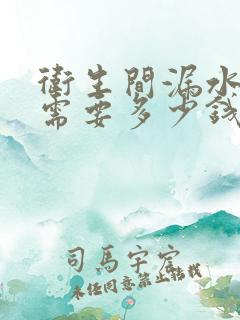 衛生間漏水
需要多少錢
司馬宇宕
未经同意禁止转载